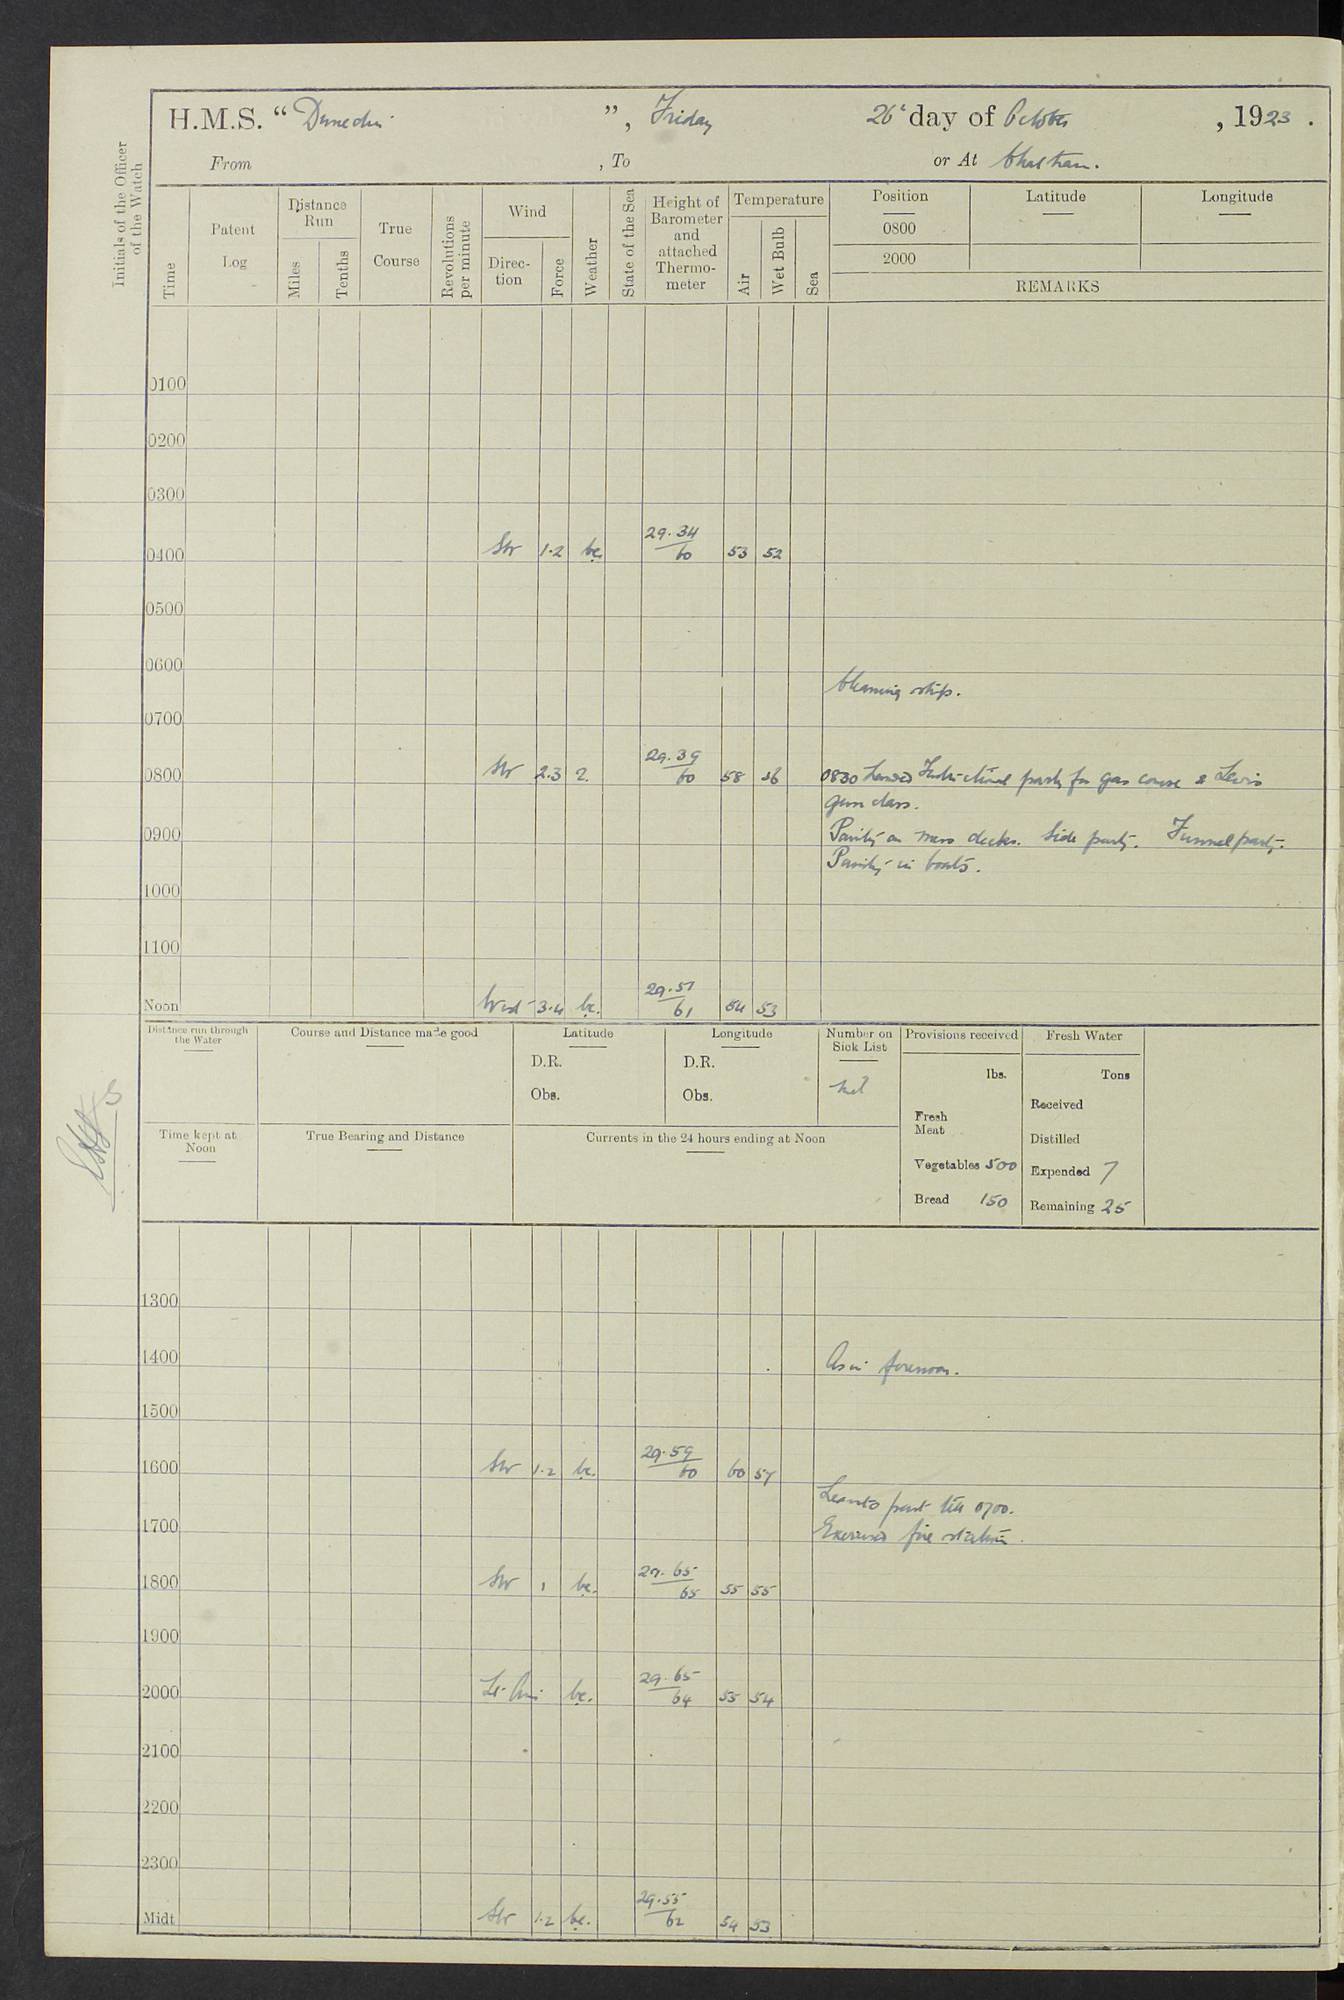 H.M.S. “ Dunedin ”, Friday 26th day of October , 1923 .
From , To or At Chatham.
Initials of the Officer of the Watch
Time
Patent Log
Distance Run
Miles
Tenths
True Course
Revolutions per minute
Wind
Direc-tion
Force
Weather
State of the Sea
Height of Barometer and attached Thermo-meter
Temperature
Air
Wet Bulb
Sea
Position
Latitude
Longitude
0800
2000
REMARKS
0100
0200
0300
0400 SW 1.2 bc. 29.34 60 53 52
0500
0600
Cleaning ship.
0700
0800 SW 2.3 29.39 60 58 56 0830 Landed Instructional party for gas course & Lewis
gun class.
0900 Painting on mess decks. Side party. Funnel party.
Painting in boats.
1000
1100
Noon West 3.4 bc. 29.51 61 54 53
Distance run through the Water
Course and Distance made good
Latitude
D.R.
Obs.
Longitude
D.R.
Obs.
Number on Sick List
Nil
Provisions received
lbs.
Fresh Meat
Vegetables 500
Bread 150
Fresh Water
Tons
Received
Distilled
Expended 7
Remaining 25
Time kept at Noon
True Bearing and Distance
Currents in the 24 hours ending at Noon
1300
1400 As in forenoon.
1500
1600 SW 1.2 bc. 29.59 60 60 57
Leave to part till 0700.
1700 Exercised fire stations.
1800 SW 1 bc. 29.65 65 55 55
1900
2000 Lt. Airs bc. 29.65 64 55 54
2100
2200
2300
Midt. SW 1.2 bc. 29.55 62 54 53